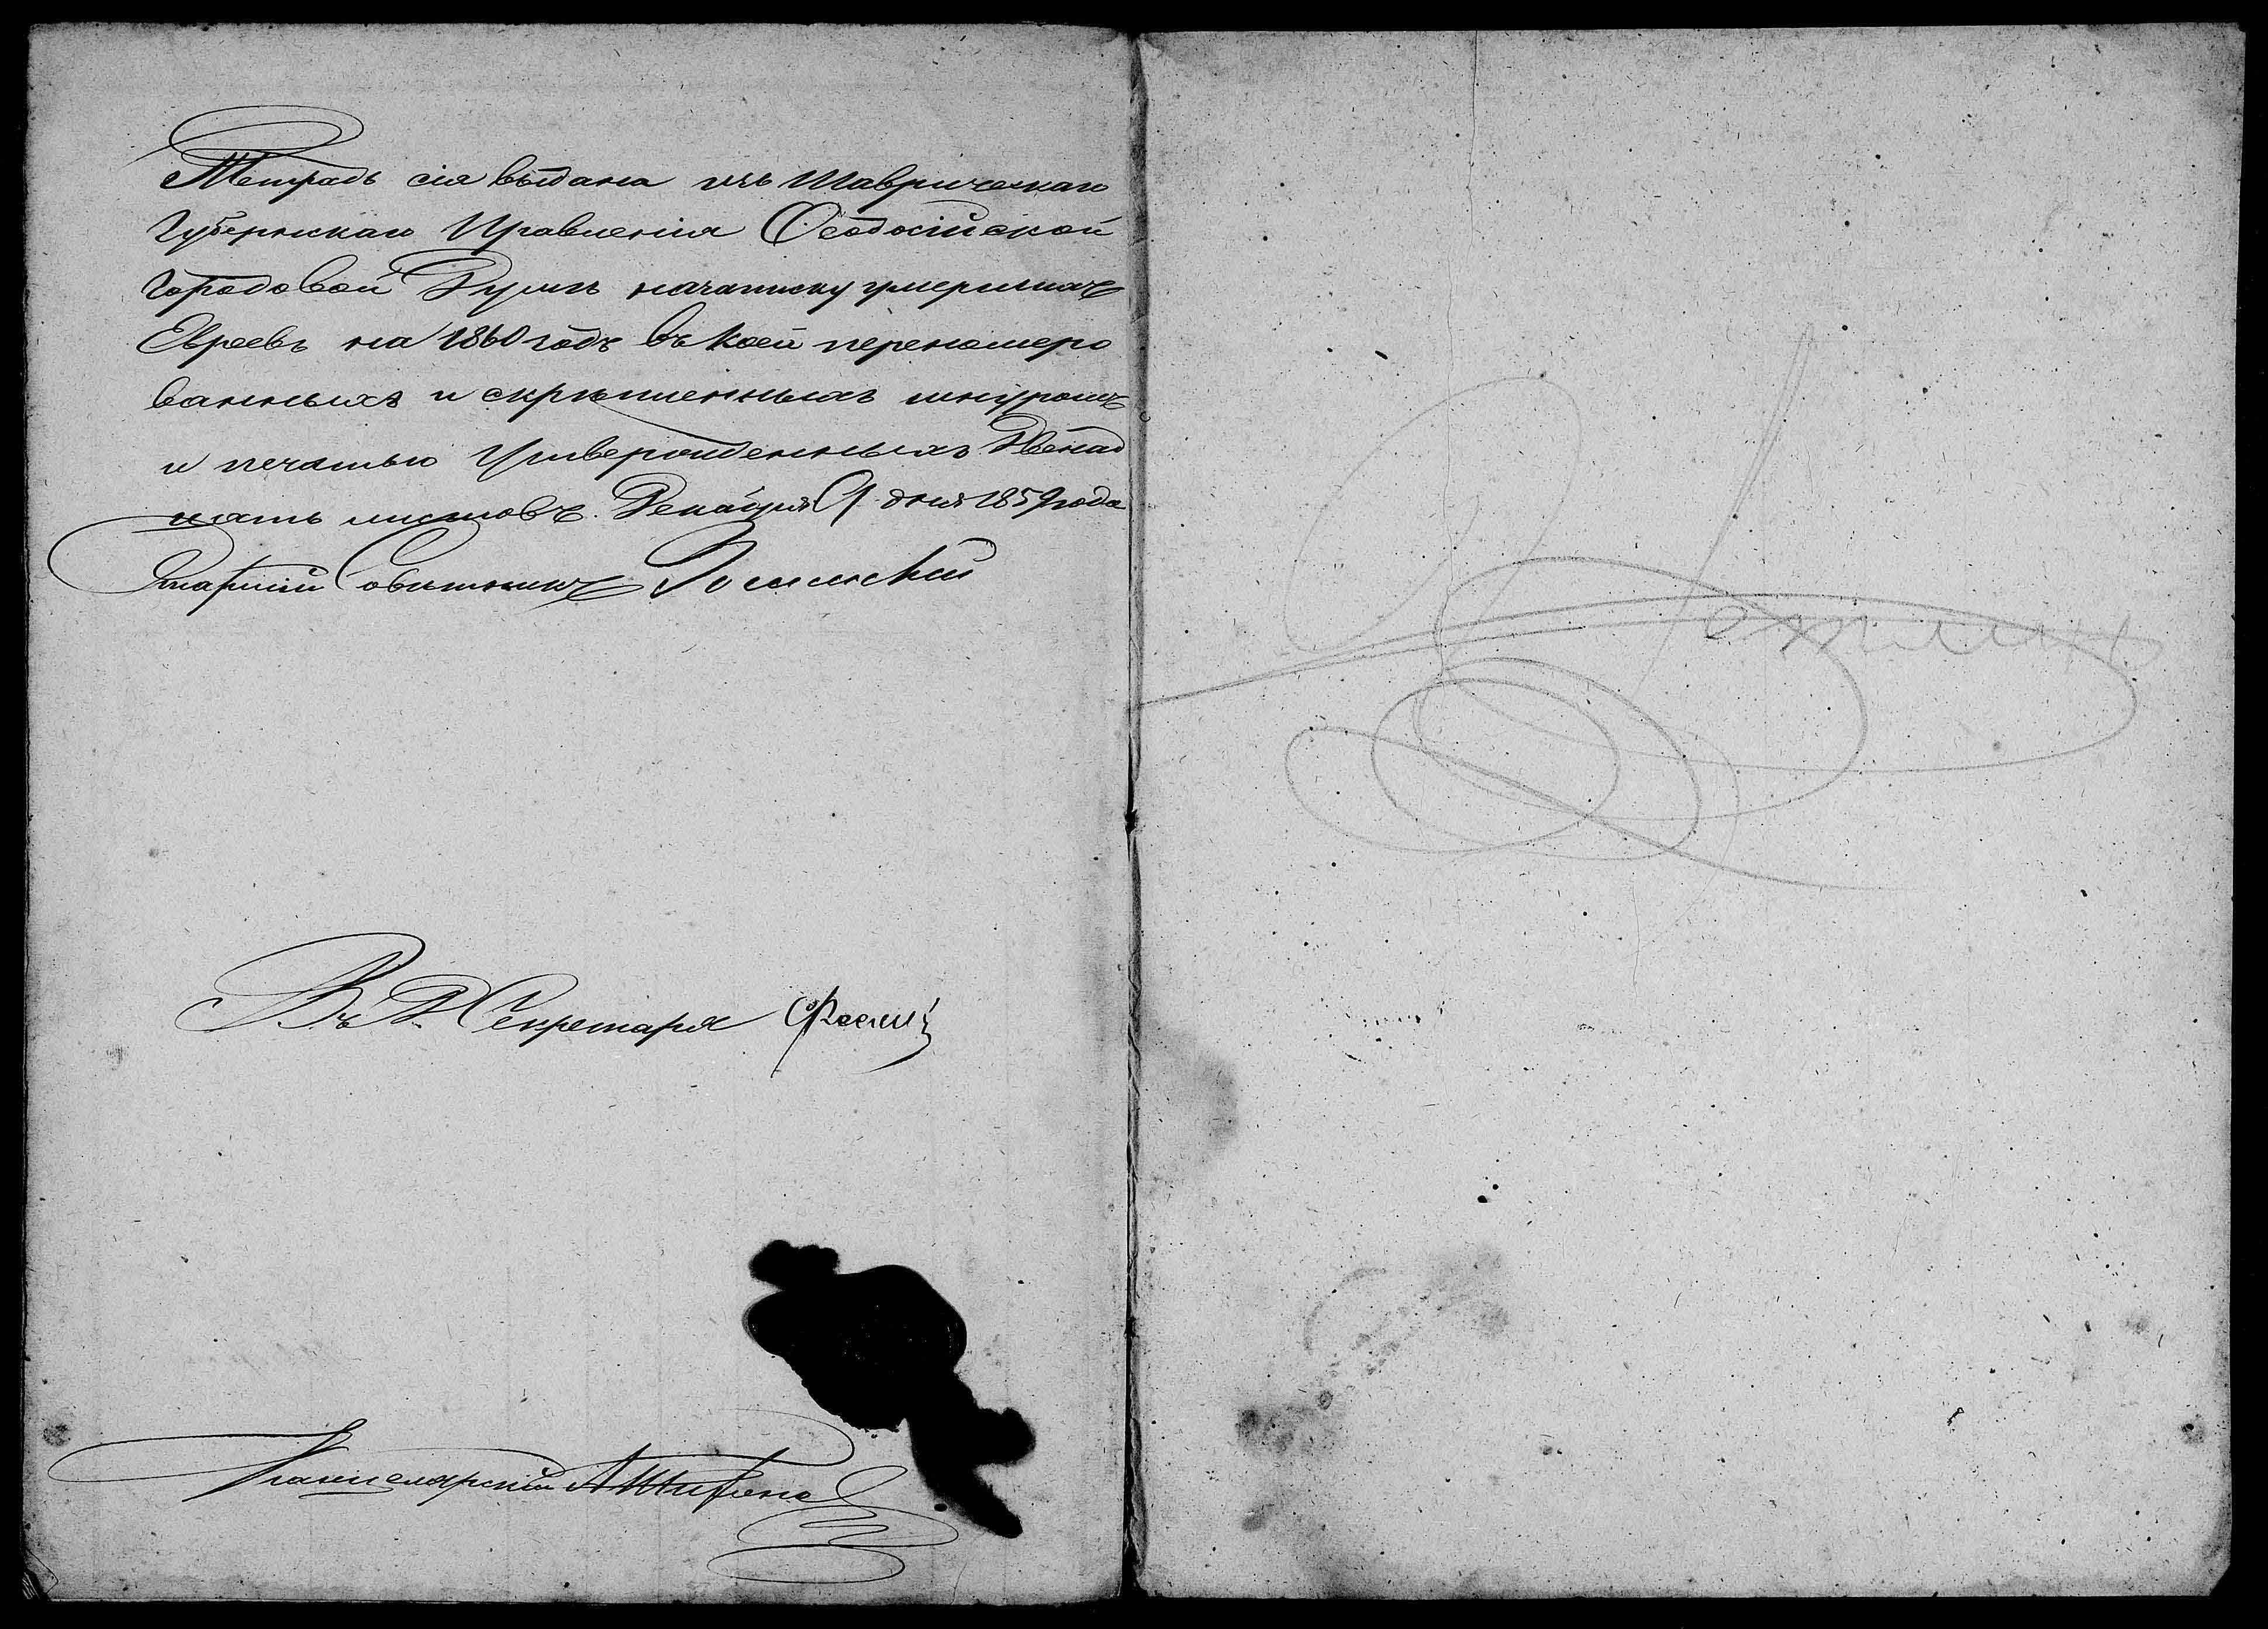 Тетрадь сія выдана изъ Таврическаго
Губернскаго Правленія Ѳеодосійской
Городовой Думѣ на записку умершихъ
Евреевъ на 1860 годъ въ коей переномеро
ванныхъ и скрѣпленныхъ шнуромъ
и печатью утвержденныхъ двенад
цать листовъ. Декабря 9 дня 1859 года
Старшій Совѣтникъ
Въ Д. Секретаря
Канцелярскій